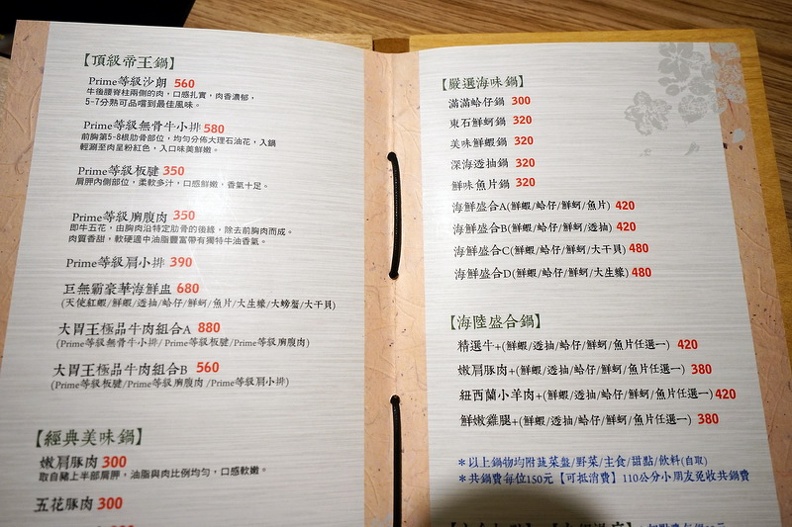 【頂級帝王鍋】
Prime等級沙朗 560
牛後腰脊柱兩側的肉，口感扎實，肉香濃郁，
5-7分熟可品嚐到最佳風味。
Prime等級無骨牛小排 580
前胸第5-8根肋骨部位，均勻分佈大理石油花，入鍋
輕涮至肉呈粉紅色，入口味美鮮嫩。
Prime等級板腱 350
肩胛內側部位，柔軟多汁，口感鮮嫩、香氣十足。
Prime等級胸腹肉 350
即牛五花，由胸肉沿特定肋骨的後緣，除去前胸肉而成。
肉質香甜，軟硬適中油脂豐富帶有獨特牛油香氣。
Prime等級肩小排 390
巨無霸豪華海鮮盅 680
(天使紅蝦/鮮蝦/透抽/蛤仔/鮮蚵/魚片/大生蠔/大螃蟹/大干貝)
大胃王極品牛肉組合A 880
(Prime等級無骨牛小排/Prime等級板腱/Prime等級胸腹肉)
大胃王極品牛肉組合B 560
(Prime等級板腱/Prime等級胸腹肉/Prime等級肩小排)
【經典美味鍋】
嫩肩豚肉 300
取自豬上半部肩胛，油脂與肉比例均勻，口感軟嫩。
五花豚肉 300
【嚴選海味鍋】
滿滿蛤仔鍋 300
東石鮮蚵鍋 320
美味鮮蝦鍋 320
深海透抽鍋 320
鮮味魚片鍋 320
海鮮盛合A(鮮蝦/蛤仔/鮮蚵/魚片) 420
海鮮盛合B(鮮蝦/蛤仔/鮮蚵/透抽) 420
海鮮盛合C(鮮蝦/蛤仔/鮮蚵/大干貝) 480
海鮮盛合D(鮮蝦/蛤仔/鮮蚵/大生蠔) 480
【海陸盛合鍋】
精選牛+(鮮蝦/透抽/蛤仔/鮮蚵/魚片任選一) 420
嫩肩豚肉+(鮮蝦/透抽/蛤仔/鮮蚵/魚片任選一) 380
紐西蘭小羊肉+(鮮蝦/透抽/蛤仔/鮮蚵/魚片任選一) 420
鮮嫩雞腿+(鮮蝦/透抽/蛤仔/鮮蚵/魚片任選一) 380
＊以上鍋物均附蔬菜盤/野菜/主食/甜點/飲料(自取)
＊共鍋費每位150元【可抵消費】110公分小朋友免收共鍋費